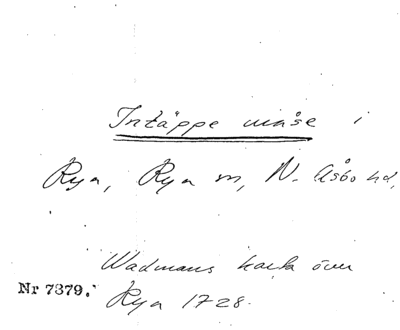 Intäppe måse i
Rya, Rya sn, N. Åsbo hd,
Wadmans karta över
Nr 7379. Rya 1728.